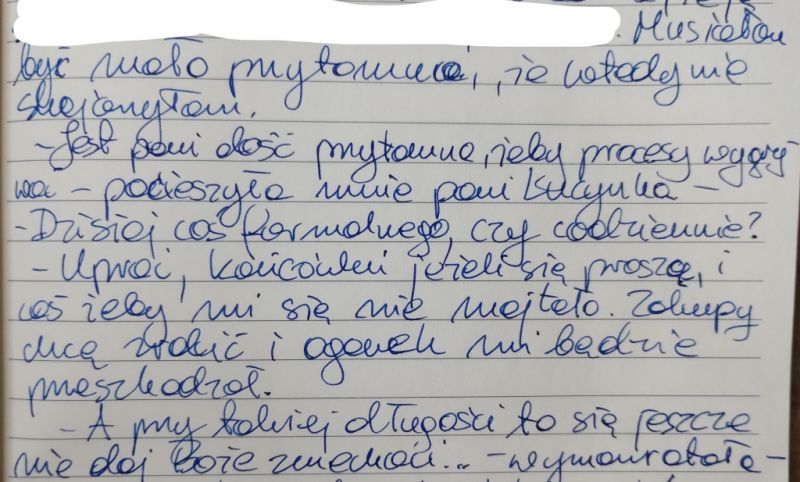 . Musiałam
być mało przytomna, że wtedy nie
skojarzyłam.
- Jest pani dość przytomna, żeby procesy wygry
wać - pocieszyła mnie pani Lucynka -
- Dzisiaj coś formalnego, czy codziennie?
- Uprać, końcówki jeżeli się proszę, i
coś żeby mi się nie majtało. Zakupy
chcę zrobić i ogonek mi będzie
przeszkadzał.
- A przy takiej długości to się jeszcze
nie daj Boże zmechaci... - wymamrotała -